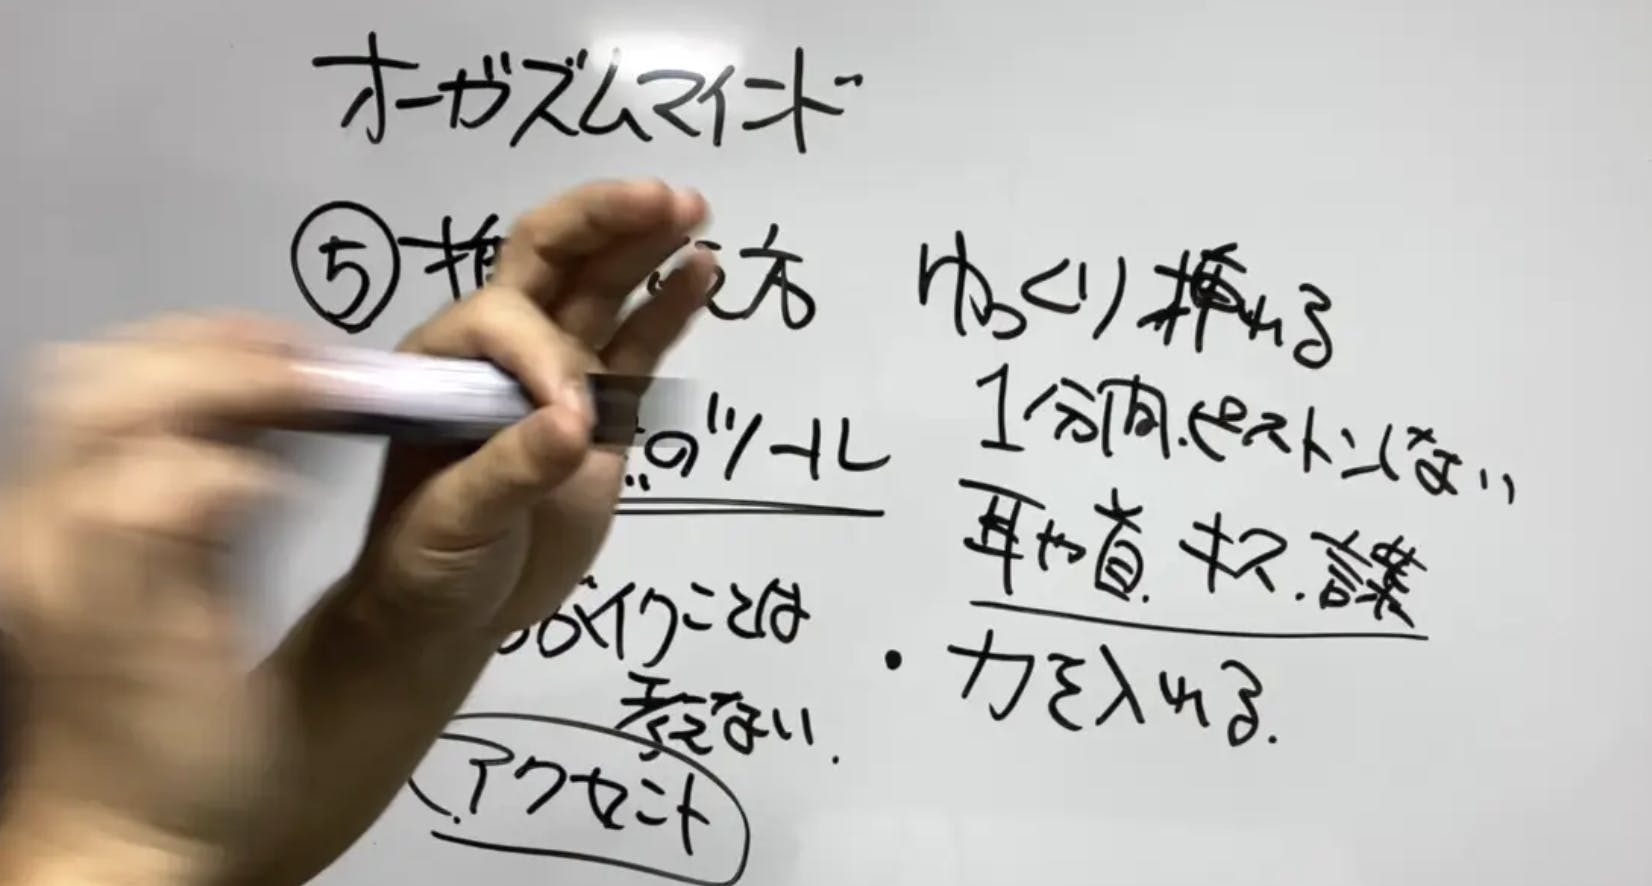 オーガズムマインド
⑤ え方
のツール
イクことは
考えない.
アクセント
ゆっくり挿れる
1分間.ピストンしない
耳や首.キス.
・力を入れる.